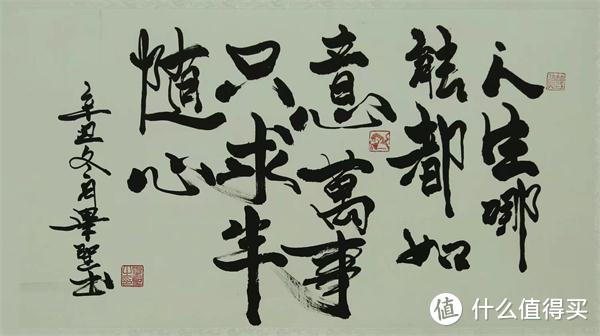 人生哪
能都如
意萬事
只求半
隨心
辛丑冬月書
值 什么值得买